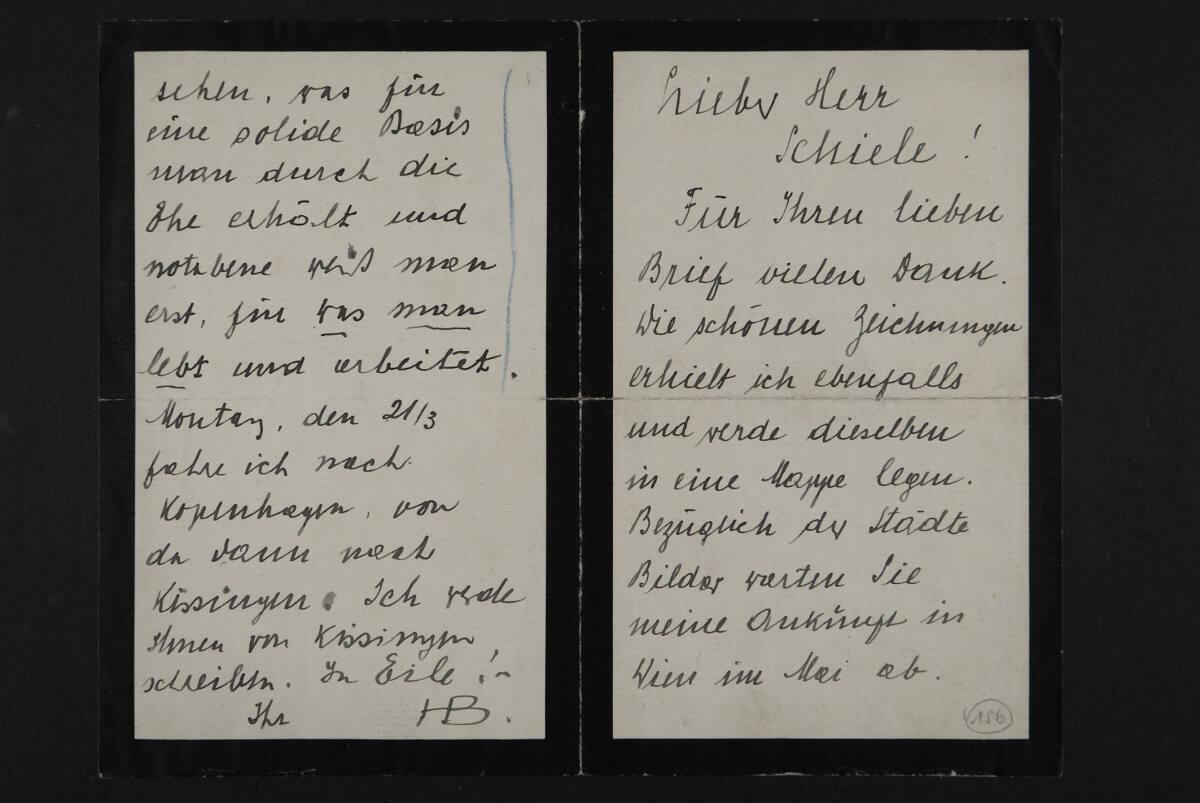 Lieber Herr
Schiele !
Für Ihren lieben
Brief vielen Dank.
Die schönen Zeichnungen
erhielt ich ebenfalls
und werde dieselben
in eine Mappe legen.
Bezüglich der Städte
Bilder warten Sie
meine Ankunft in
Wien im Mai ab.
156
sehen, was für
eine solide Basis
man durch die
Ehe erhält und
notabene weiß man
erst, für was man
lebt und arbeitet.
Montag, den 21/3
fahre ich nach
Kopenhagen, von
da dann nach
Kissingen. Ich werde
Ihnen von Kissingen
schreiben. In Eile !-
Ihr HB.